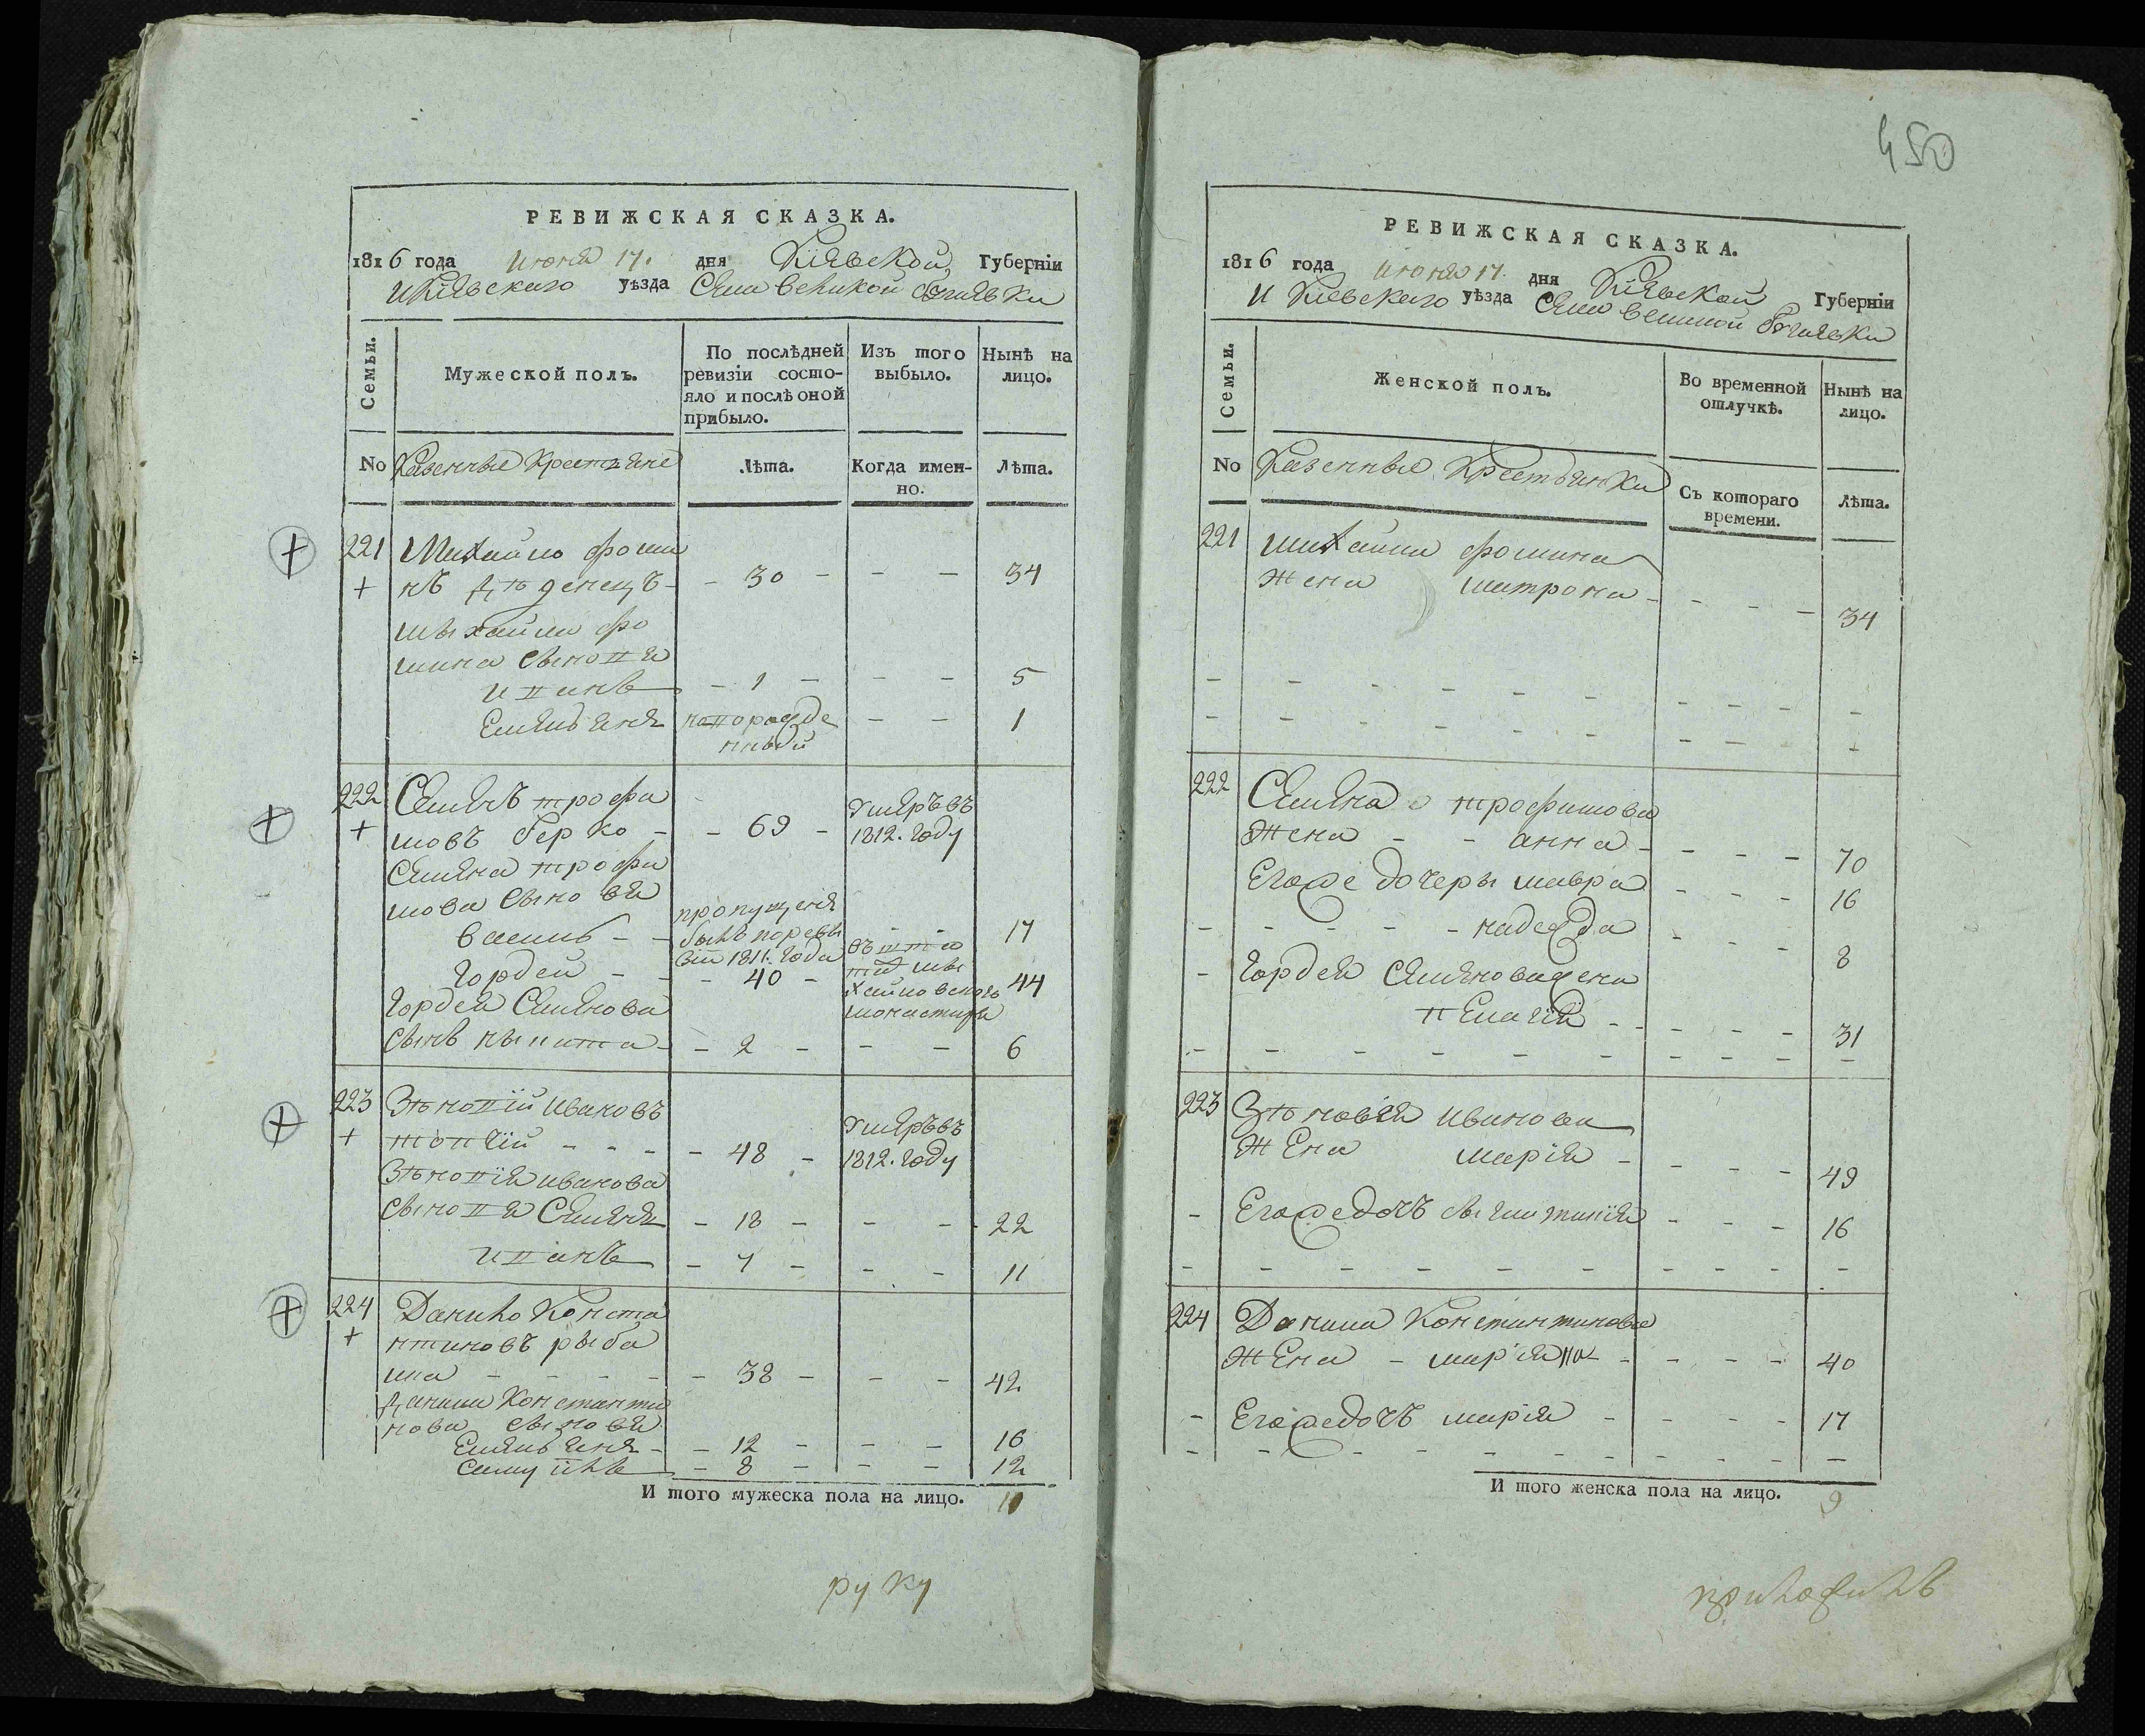 РЕВИЖСКАЯ СКАЗКА.
1816 года июня 17. дня Кіевской Губерніи
и Кіевскаго уѣзда Села великой
Семьи.
Мужеской полъ.
По послѣдней ревизіи состояло и послѣ оной прибыло.
Изъ того выбыло.
Нынѣ на лицо.
No Казенные крестьяне
Лѣта.
Когда именно.
Лѣта.
221 Михайло Фоми
нъ - 30 - - - 34
михайла фо
мина сыновя
иванъ - 1 - - - 5
Емельянъ новорожде - - 1
нный
222 Семенъ трофи
умеръ въ
мовъ берко - - 69 - 1812. году
Семена трофи
мова сыновя
пропущенъ
василь - - былъ по реви - - 17
зіи 1811. года
гордей - - - 40 - 44
гордея Семенова
монастиря
сынъ никита - - 2 - - - 6
223 Зѣновій ивановъ
умеръ въ
топчій - - - - 48 - 1812. году
Зѣновія иванова
сыновя Семенъ - 18 - - - 22
иванъ - 7 - - - 11
224 Данило Конста
нтиновъ рыба
лка - - - - - 38 - - - 42
данила Константи
нова сыновя
Емельянъ - - 12 - - - 16
самуйлъ - 8 - - - 12
И того мужеска пола на лицо. 10
руку
450
РЕВИЖСКАЯ СКАЗКА.
1816 года июня 17. дня Кіевской Губерніи
и Кіевскаго уѣзда Села великой
Семьи.
Женской полъ.
Во временной отлучкѣ.
Нынѣ на лицо.
No Казенные крестьянки
Съ котораго времени.
Лѣта.
221 михайла фомина
жена матрона - - - - 34
222 Семена трофимова
жена - - анна - - - - 70
Егоже дочеры мавра - - - 16
- - - - - надежда - - - 8
- гордея Семенова жена
пелагія - - - - - 31
223 Зѣновія иванова
жена марія - - - - 49
- Егоже дочъ - - - 16
224 Данила Константинова
жена - марія - - - - 40
- Егоже дочъ марія - - - - 17
И того женска пола на лицо. 9
приложилъ